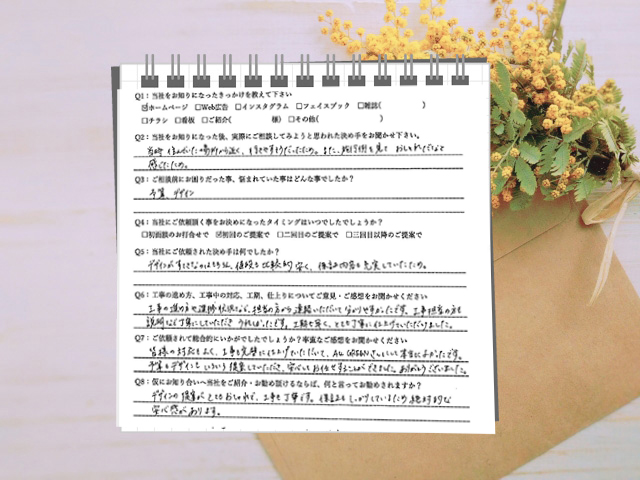 Q1：当社をお知りになったきっかけを教えて下さい
☑ホームページ □Web広告 □インスタグラム □フェイスブック □雑誌( )
□チラシ □看板 □ご紹介( 様) □その他( )
Q2：当社をお知りになった後、実際にご相談してみようと思われた決め手をお聞かせ下さい。
当時 住んでいた場所から近く、任せやすそうだったため。また、施行例を見て おしゃれだなと
感じたため。
Q3：ご相談前にお困りだった事、悩まれていた事はどんな事でしたか？
予算、デザイン
Q4：当社にご依頼頂く事をお決めになったタイミングはいつでしたでしょうか？
□初面談のお打合せで ☑初回のご提案で □二回目のご提案で □三回目以降のご提案で
Q5：当社にご依頼された決め手は何でしたか？
デザインがすてきなのはもちろん、値段も比較的安く、保証内容も充実していたため。
Q6：工事の進め方、工事中の対応、工期、仕上りについてご意見・ご感想をお聞かせください
工事の進め方や進捗状況など、担当の方から連絡いただいて分かりやすかったです。工事担当の方も
説明など丁寧にしていただき うれしかったです。工期も早く、とても丁寧に仕上げていただけました。
Q7：ご依頼されて総合的にいかがでしたでしょうか？率直なご感想をお聞かせください
皆様の対応もよく、工事も完璧に仕上げていただいて、ALL GREENさんにして本当によかったです。
予算もデザインも いろいろ提案していただき、安心してお任せすることができました。ありがとうございました。
Q8：仮にお知り合いへ当社をご紹介・お勧め頂けるならば、何と言ってお勧めされますか？
デザインの提案がとてもおしゃれで、工事も丁寧です。保証もしっかりしているため絶対的な
安心感があります。